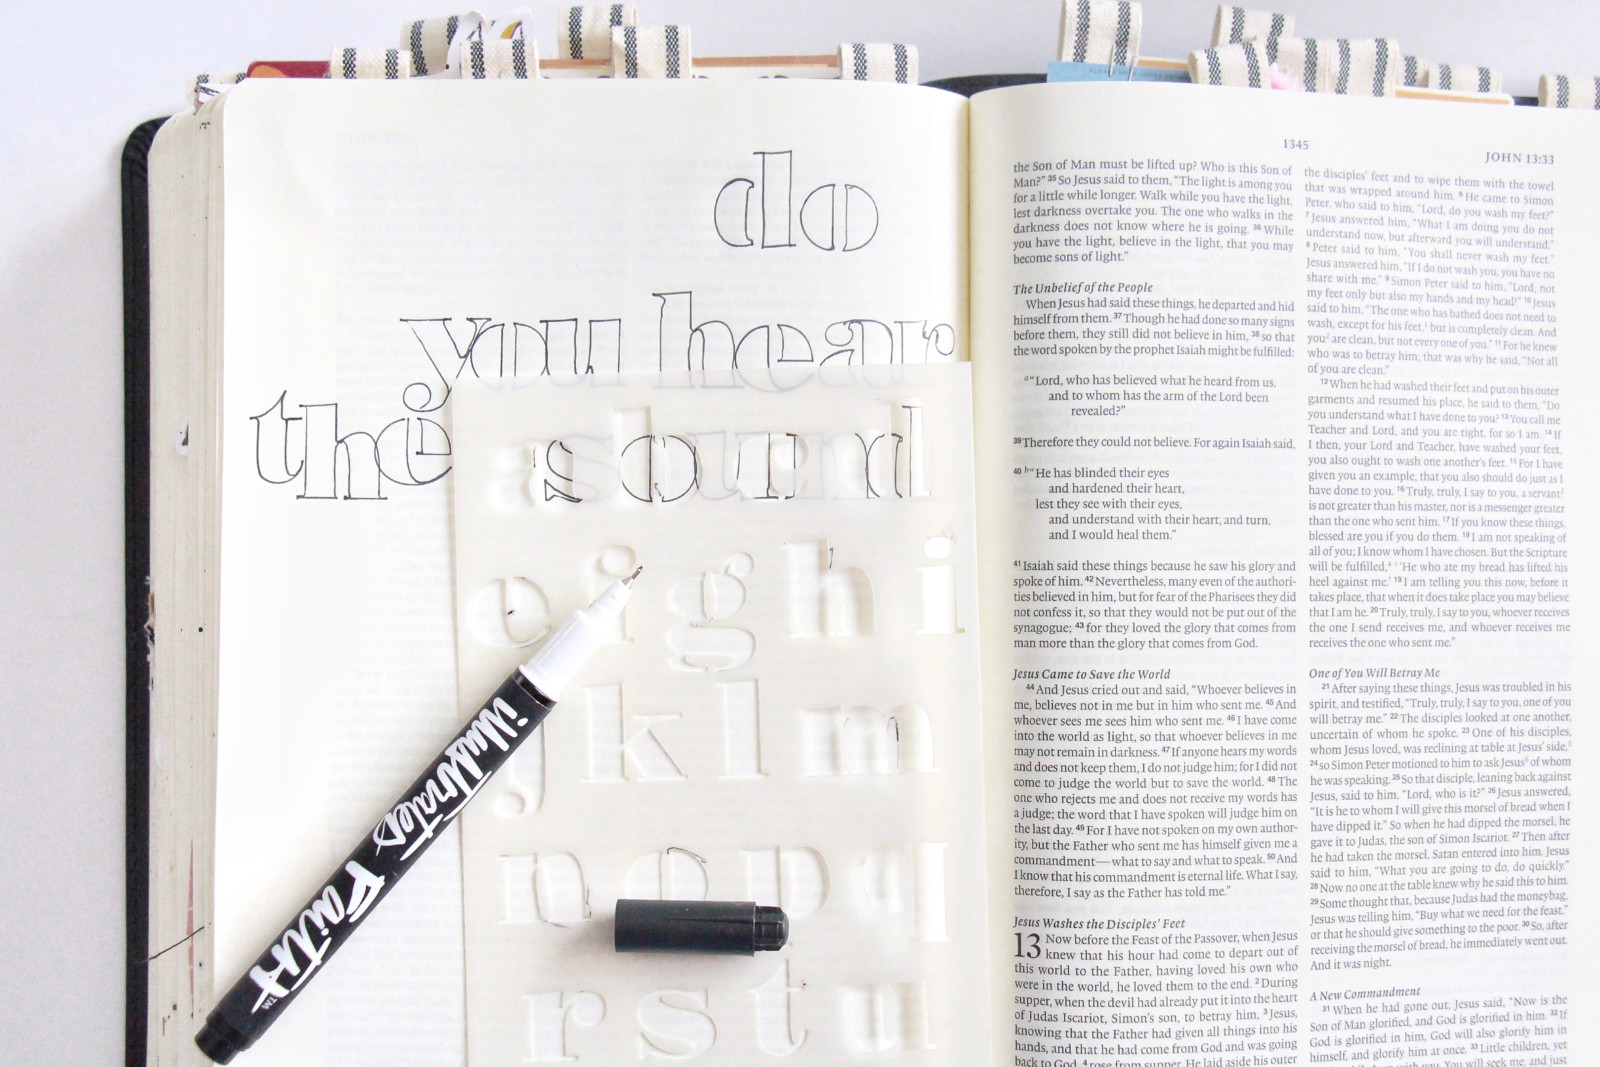 do
you hear
the sound
e f g h i
j k l m
n o p q
r s t u
illustrated FAITH™
1345
JOHN 13:33
the Son of Man must be lifted up? Who is this Son of
Man?” 35 So Jesus said to them, “The light is among you
for a little while longer. Walk while you have the light,
lest darkness overtake you. The one who walks in the
darkness does not know where he is going. 36 While
you have the light, believe in the light, that you may
become sons of light.”
The Unbelief of the People
When Jesus had said these things, he departed and hid
himself from them. 37 Though he had done so many signs
before them, they still did not believe in him, 38 so that
the word spoken by the prophet Isaiah might be fulfilled:
“Lord, who has believed what he heard from us,
and to whom has the arm of the Lord been
revealed?”
39 Therefore they could not believe. For again Isaiah said,
40 “He has blinded their eyes
and hardened their heart,
lest they see with their eyes,
and understand with their heart, and turn,
and I would heal them.”
41 Isaiah said these things because he saw his glory and
spoke of him. 42 Nevertheless, many even of the authori-
ties believed in him, but for fear of the Pharisees they did
not confess it, so that they would not be put out of the
synagogue; 43 for they loved the glory that comes from
man more than the glory that comes from God.
Jesus Came to Save the World
44 And Jesus cried out and said, “Whoever believes in
me, believes not in me but in him who sent me. 45 And
whoever sees me sees him who sent me. 46 I have come
into the world as light, so that whoever believes in me
may not remain in darkness. 47 If anyone hears my words
and does not keep them, I do not judge him; for I did not
come to judge the world but to save the world. 48 The
one who rejects me and does not receive my words has
a judge; the word that I have spoken will judge him on
the last day. 49 For I have not spoken on my own author-
ity, but the Father who sent me has himself given me a
commandment—what to say and what to speak. 50 And
I know that his commandment is eternal life. What I say,
therefore, I say as the Father has told me.”
Jesus Washes the Disciples’ Feet
13 Now before the Feast of the Passover, when Jesus
knew that his hour had come to depart out of
this world to the Father, having loved his own who
were in the world, he loved them to the end. 2 During
supper, when the devil had already put it into the heart
of Judas Iscariot, Simon’s son, to betray him, 3 Jesus,
knowing that the Father had given all things into his
hands, and that he had come from God and was going
back to God, 4 rose from supper. He laid aside his outer
the disciples’ feet and to wipe them with the towel
that was wrapped around him. 6 He came to Simon
Peter, who said to him, “Lord, do you wash my feet?”
7 Jesus answered him, “What I am doing you do not
understand now, but afterward you will understand.”
8 Peter said to him, “You shall never wash my feet.”
Jesus answered him, “If I do not wash you, you have no
share with me.” 9 Simon Peter said to him, “Lord, not
my feet only but also my hands and my head!” 10 Jesus
said to him, “The one who has bathed does not need to
wash, except for his feet, but is completely clean. And
you are clean, but not every one of you.” 11 For he knew
who was to betray him; that was why he said, “Not all
of you are clean.”
12 When he had washed their feet and put on his outer
garments and resumed his place, he said to them, “Do
you understand what I have done to you? 13 You call me
Teacher and Lord, and you are right, for so I am. 14 If
I then, your Lord and Teacher, have washed your feet,
you also ought to wash one another’s feet. 15 For I have
given you an example, that you also should do just as I
have done to you. 16 Truly, truly, I say to you, a servant
is not greater than his master, nor is a messenger greater
than the one who sent him. 17 If you know these things,
blessed are you if you do them. 18 I am not speaking of
all of you; I know whom I have chosen. But the Scripture
will be fulfilled, ‘He who ate my bread has lifted his
heel against me.’ 19 I am telling you this now, before it
takes place, that when it does take place you may believe
that I am he. 20 Truly, truly, I say to you, whoever receives
the one I send receives me, and whoever receives me
receives the one who sent me.”
One of You Will Betray Me
21 After saying these things, Jesus was troubled in his
spirit, and testified, “Truly, truly, I say to you, one of you
will betray me.” 22 The disciples looked at one another,
uncertain of whom he spoke. 23 One of his disciples,
whom Jesus loved, was reclining at table at Jesus’ side,
24 so Simon Peter motioned to him to ask Jesus of whom
he was speaking. 25 So that disciple, leaning back against
Jesus, said to him, “Lord, who is it?” 26 Jesus answered,
“It is he to whom I will give this morsel of bread when I
have dipped it.” So when he had dipped the morsel, he
gave it to Judas, the son of Simon Iscariot. 27 Then after
he had taken the morsel, Satan entered into him. Jesus
said to him, “What you are going to do, do quickly.”
28 Now no one at the table knew why he said this to him.
29 Some thought that, because Judas had the moneybag,
Jesus was telling him, “Buy what we need for the feast,”
or that he should give something to the poor. 30 So, after
receiving the morsel of bread, he immediately went out.
And it was night.
A New Commandment
31 When he had gone out, Jesus said, “Now is the
Son of Man glorified, and God is glorified in him. 32 If
God is glorified in him, God will also glorify him in
himself, and glorify him at once. 33 Little children, yet
a little while I am with you. You will seek me, and just